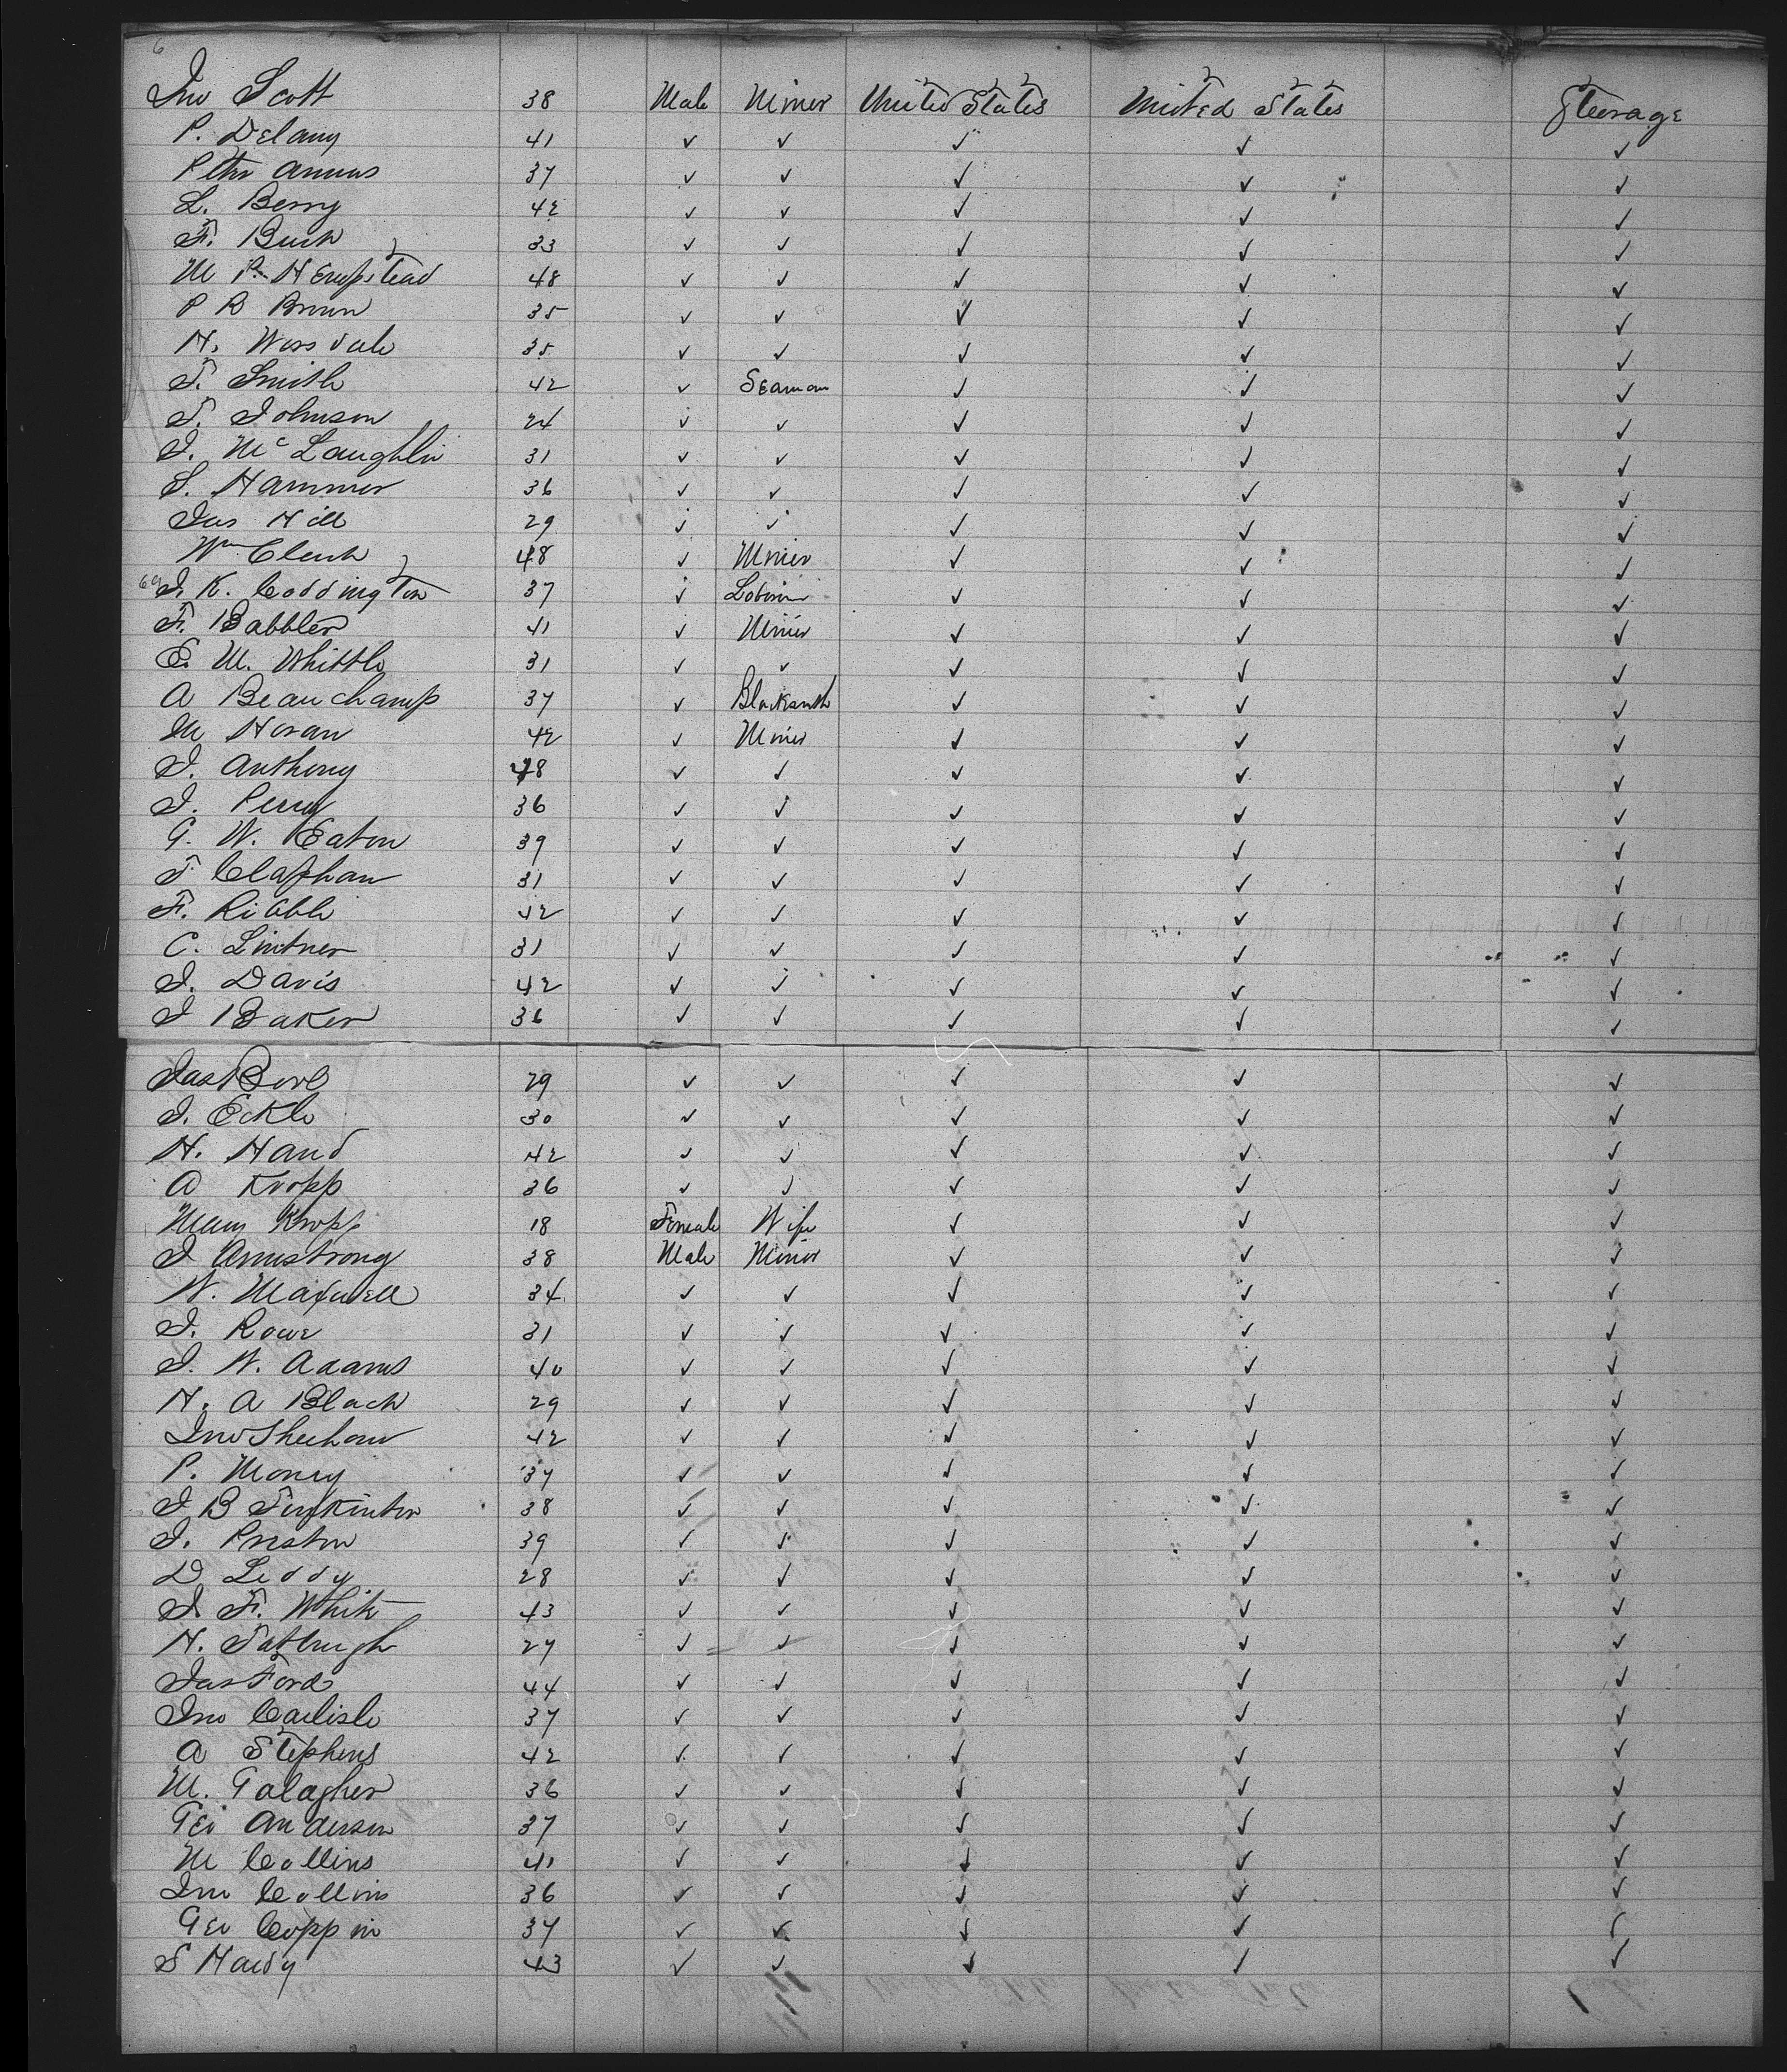 6
Jno Scott 38 Male Miner United States United States Steerage
P. Delany 41 ✓ ✓ ✓ ✓ ✓
Peter Annus 37 ✓ ✓ ✓ ✓ ✓
L. Berry 42 ✓ ✓ ✓ ✓ ✓
F. Bush 33 ✓ ✓ ✓ ✓ ✓
M P. Hempstead 48 ✓ ✓ ✓ ✓ ✓
P B Brown 35 ✓ ✓ ✓ ✓ ✓
H. Worsdale 35 ✓ ✓ ✓ ✓ ✓
T. Smith 42 ✓ Seaman ✓ ✓ ✓
T. Johnson 24 ✓ ✓ ✓ ✓ ✓
J. McLaughlin 31 ✓ ✓ ✓ ✓ ✓
S. Hammer 36 ✓ ✓ ✓ ✓ ✓
Jas Hill 29 ✓ ✓ ✓ ✓ ✓
Wm 48 ✓ Miner ✓ ✓ ✓
J. K. Coddington 37 ✓ Laborer ✓ ✓ ✓
F. Babbler 41 ✓ Miner ✓ ✓ ✓
E. M. Whittle 31 ✓ ✓ ✓ ✓ ✓
A Beauchamp 37 ✓ Blacksmith ✓ ✓ ✓
M Horan 42 ✓ Miner ✓ ✓ ✓
J. Anthony 48 ✓ ✓ ✓ ✓ ✓
J. Perry 36 ✓ ✓ ✓ ✓ ✓
G. W. Eaton 39 ✓ ✓ ✓ ✓ ✓
T. Clapham 31 ✓ ✓ ✓ ✓ ✓
F. Ribble 42 ✓ ✓ ✓ ✓ ✓
C. Lintner 31 ✓ ✓ ✓ ✓ ✓
J. Davis 42 ✓ ✓ ✓ ✓ ✓
J Baker 36 ✓ ✓ ✓ ✓ ✓
Jas 29 ✓ ✓ ✓ ✓ ✓
J. Eckle 30 ✓ ✓ ✓ ✓ ✓
H. Hand 42 ✓ ✓ ✓ ✓ ✓
A Kropp 36 ✓ ✓ ✓ ✓ ✓
Mary Kropp 18 Female Wife ✓ ✓ ✓
J Armstrong 38 Male Miner ✓ ✓ ✓
W. Maxwell 34 ✓ ✓ ✓ ✓ ✓
J. Rowe 31 ✓ ✓ ✓ ✓ ✓
J. W. Adams 40 ✓ ✓ ✓ ✓ ✓
H. A Black 29 ✓ ✓ ✓ ✓ ✓
Jno Sheehan 42 ✓ ✓ ✓ ✓ ✓
P. Money 37 ✓ ✓ ✓ ✓ ✓
J B 38 ✓ ✓ ✓ ✓ ✓
J. Preston 39 ✓ ✓ ✓ ✓ ✓
D Leddy 28 ✓ ✓ ✓ ✓ ✓
J. F. White 43 ✓ ✓ ✓ ✓ ✓
H. 27 ✓ ✓ ✓ ✓ ✓
Jas Ford 44 ✓ ✓ ✓ ✓ ✓
Jno Carlisle 37 ✓ ✓ ✓ ✓ ✓
A Stephens 42 ✓ ✓ ✓ ✓ ✓
M. Galagher 36 ✓ ✓ ✓ ✓ ✓
Geo Anderson 37 ✓ ✓ ✓ ✓ ✓
M Collins 41 ✓ ✓ ✓ ✓ ✓
Jno Collins 36 ✓ ✓ ✓ ✓ ✓
Geo Coppin 37 ✓ ✓ ✓ ✓ ✓
S Hardy 43 ✓ ✓ ✓ ✓ ✓